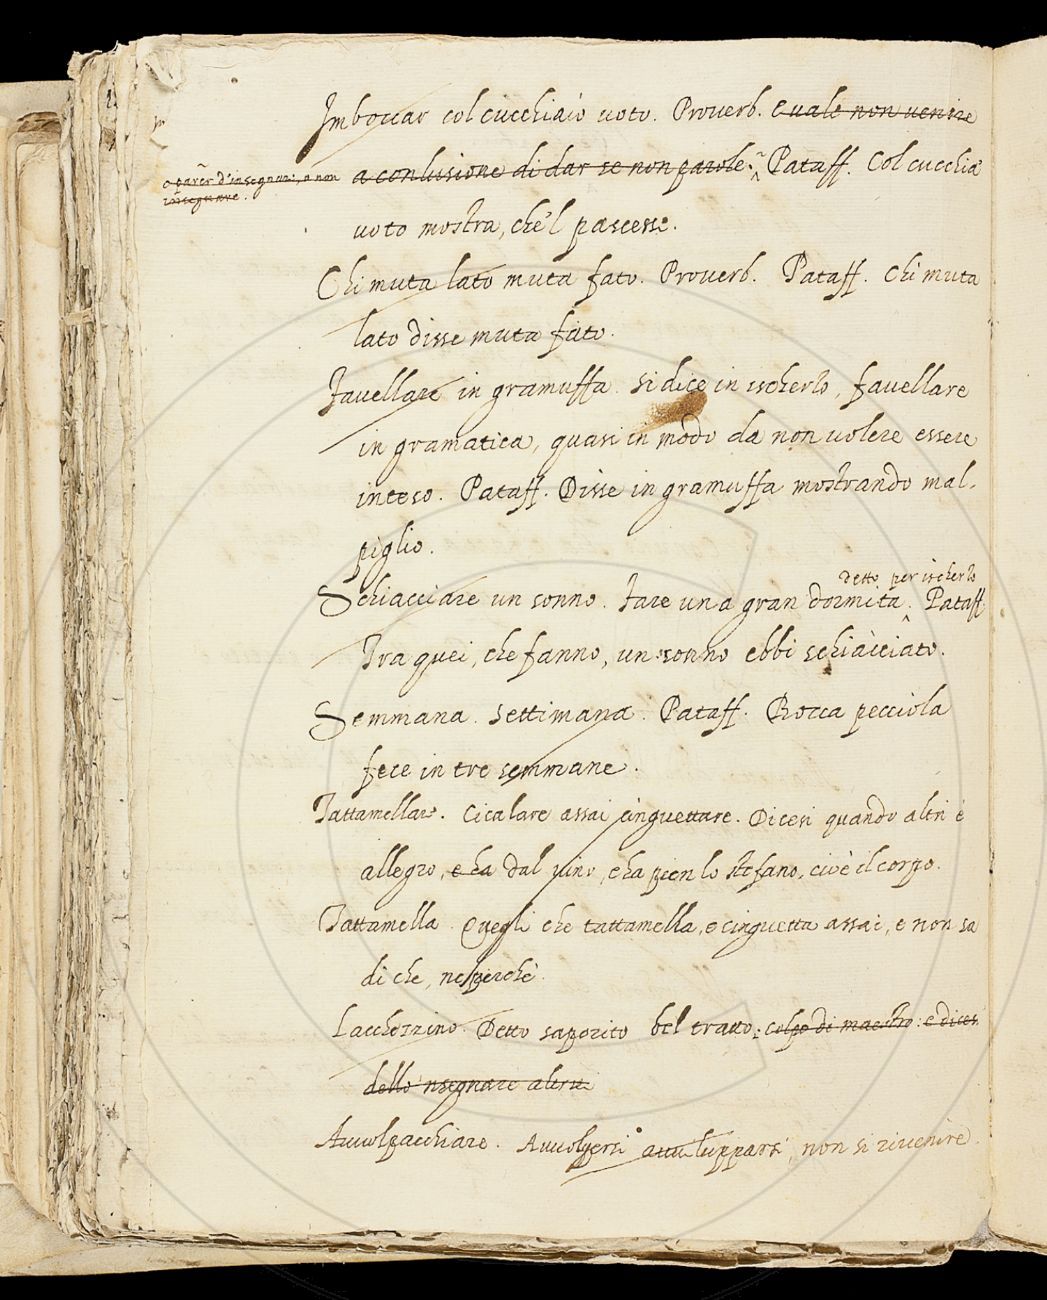 Imboccar col cucchiaio voto. Proverb. E uale non uenire
o parer d'insegnari, a non
insegnare.
a conlusione di dar se non parole. Pataff. Col cucchia'
uoto mostra, che'l pascesse.
Chi muta lato muta fato. Proverb. Pataff. Chi muta
lato disse muta fato.
Fauellare in gramuffa. Si dice in ischerzo, fauellare
in gramatica, quasi in modo da non uolere essere
inteso. Pataff. Disse in gramuffa mostrando mal-
piglio.
detto per ischerzo
Schiacciare un sonno. Fare una gran dormita. Pataff
Tra quei, che fanno, un sonno ebbi schiacciato.
Semmana. Settimana. Pataff. Rocca pecciola
fece in tre semmane.
Tattamellare. Cicalare assai cinguettare. Dicesi quando altri è
allegro, e ha dal uino, e ha pien lo stefano, cioè il corpo.
Tattamella. Quegli che tattamella, e cinguetta assai, e non sa
di che, ne perchè.
Lacchezzino. Detto saporito bel tratto, colpo di maestro: e dicesi
dello 'nsegnare altrui
Auuolpacchiare. Auuolgersi auuilupparsi, non si riuenire.